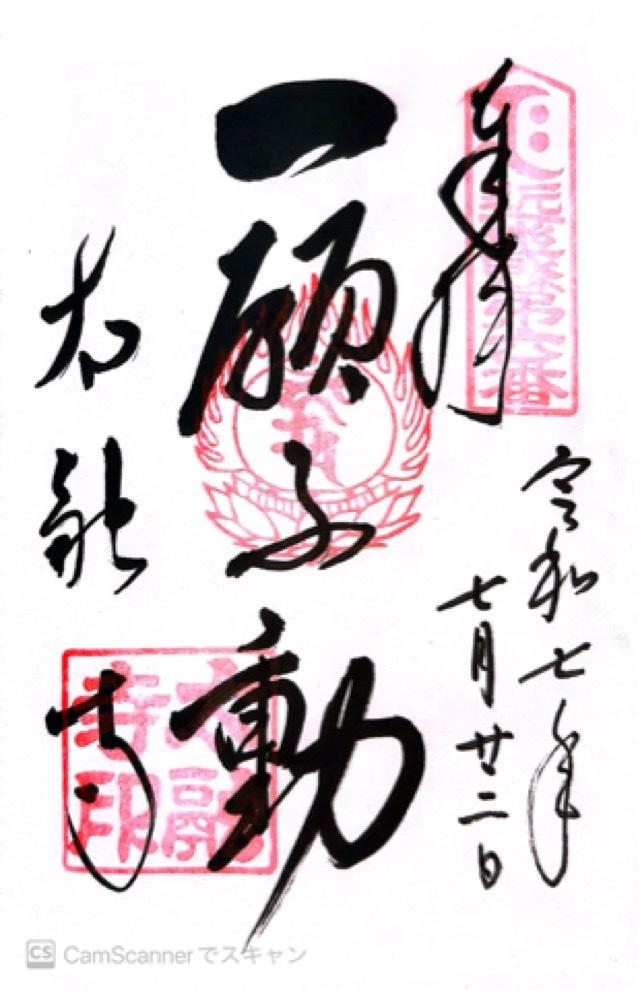 奉拝
令和七年
七月廿二日
一願不動
太融寺
太融寺印
CS CamScannerでスキャン